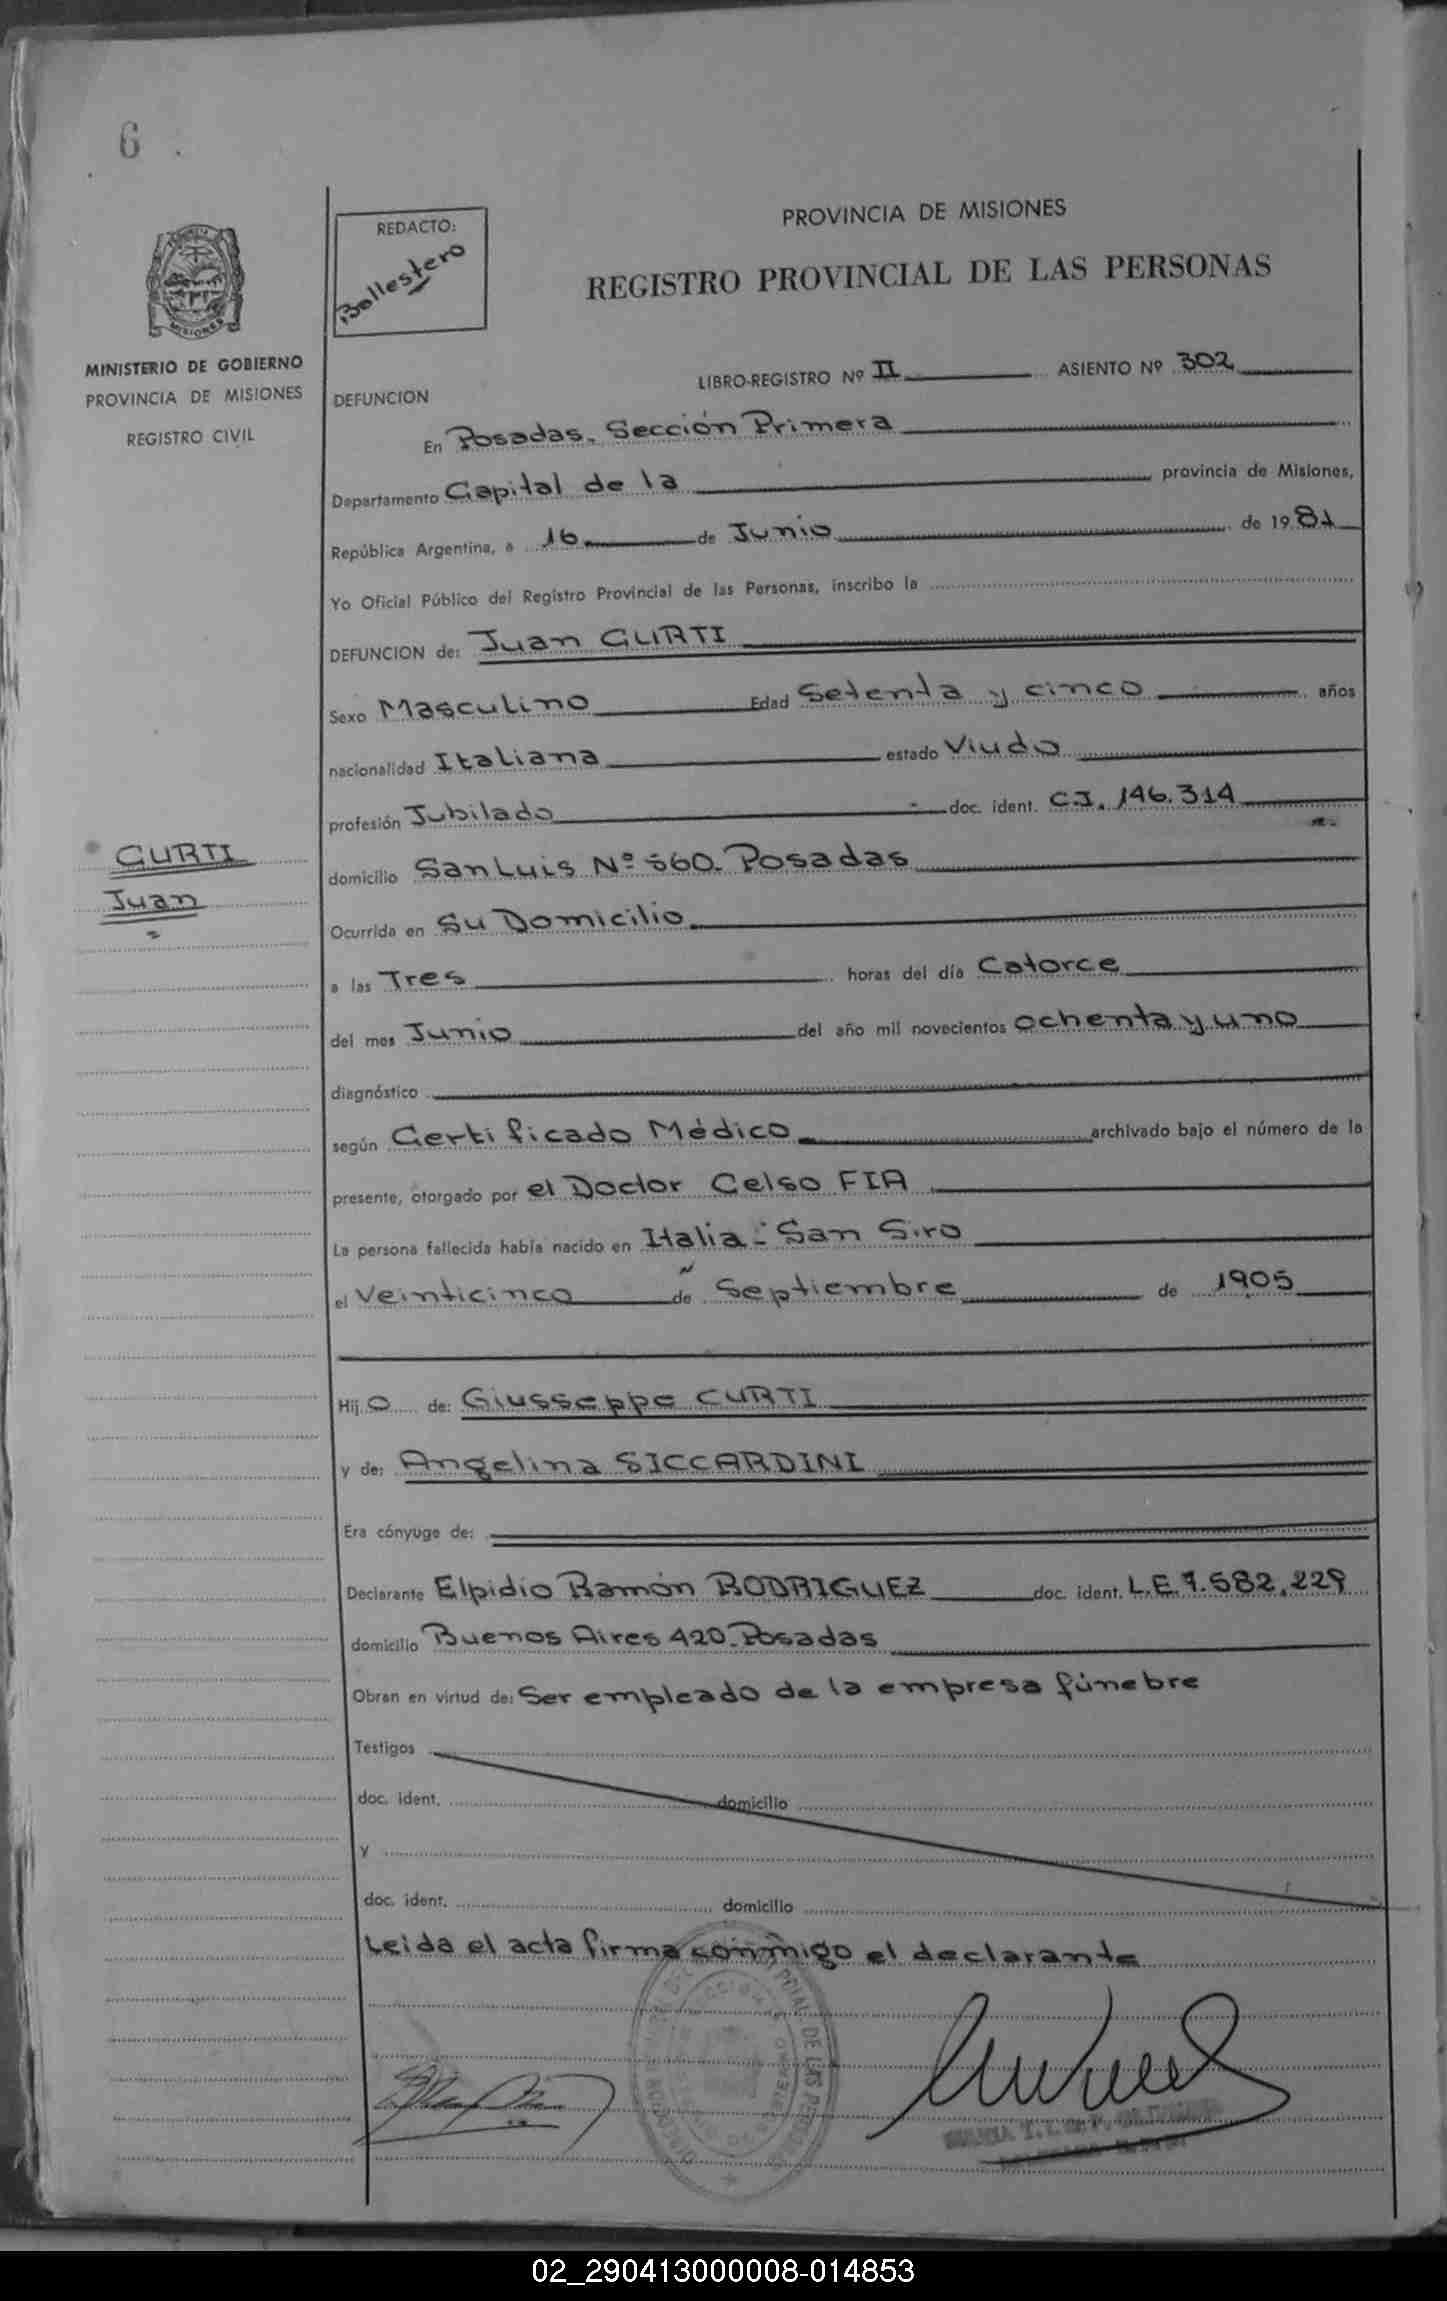 6
REDACTO:
Ballestero
PROVINCIA DE MISIONES
REGISTRO PROVINCIAL DE LAS PERSONAS
MISIONES
MINISTERIO DE GOBIERNO
PROVINCIA DE MISIONES
REGISTRO CIVIL
DEFUNCION
LIBRO-REGISTRO Nº II ASIENTO Nº 302
En Posadas. Sección Primera
Departamento Capital de la provincia de Misiones,
República Argentina, a 16 de Junio de 1981
Yo Oficial Público del Registro Provincial de las Personas, inscribo la
DEFUNCION de: Juan CURTI
Sexo Masculino Edad Setenta y cinco años
nacionalidad Italiana estado Viudo
profesión Jubilado doc. ident. C.I. 146.314
CURTI
Juan
domicilio San Luis Nº 560. Posadas
Ocurrida en Su Domicilio
a las Tres horas del día Catorce
del mes Junio del año mil novecientos ochenta y uno
diagnóstico
según Certificado Médico archivado bajo el número de la
presente, otorgado por el Doctor Celso FIA
La persona fallecida había nacido en Italia - San Siro
el Veinticinco de Septiembre de 1905
Hijo de: Giusseppe CURTI
y de: Angelina SICCARDINI
Era cónyuge de:
Declarante Elpidio Ramón RODRIGUEZ doc. ident. L.E. 7.582.229
domicilio Buenos Aires 420. Posadas
Obran en virtud de: Ser empleado de la empresa fúnebre
Testigos
doc. ident. domicilio
y
doc. ident. domicilio
Leida el acta firma conmigo el declarante
02_290413000008-014853